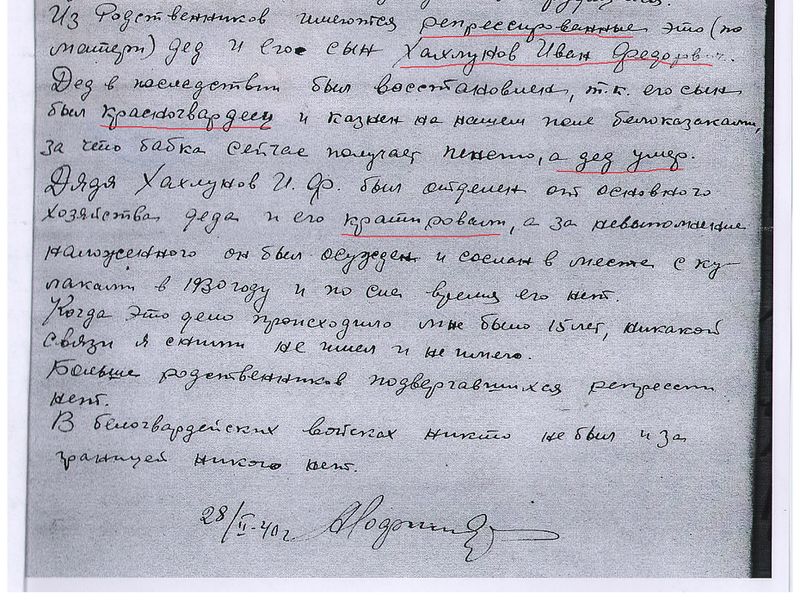 Из Родственников имеются репрессированные это (по
матери) дед и его сын Хахлунов Иван Федорович.
Дед в последствии был восстановлен, т.к. его сын
был красногвардеец и казнен на нашем поле белоказаками,
за что бабка сейчас получает пенсию, а дед умер.
Дядя Хахлунов И. Ф. был отделен от основного
хозяйства деда и его кратировали, а за невыполнение
наложенного он был осужден и сослан в месте с ку-
лаками в 1930 году и по сие время его нет.
Когда это дело происходило мне было 15 лет, никакой
связи я с ними не имел и не имею.
Больше родственников подвергавшихся репрессии
нет.
В белогвардейских войсках никто не был и за
границей никого нет.
28/II-40г